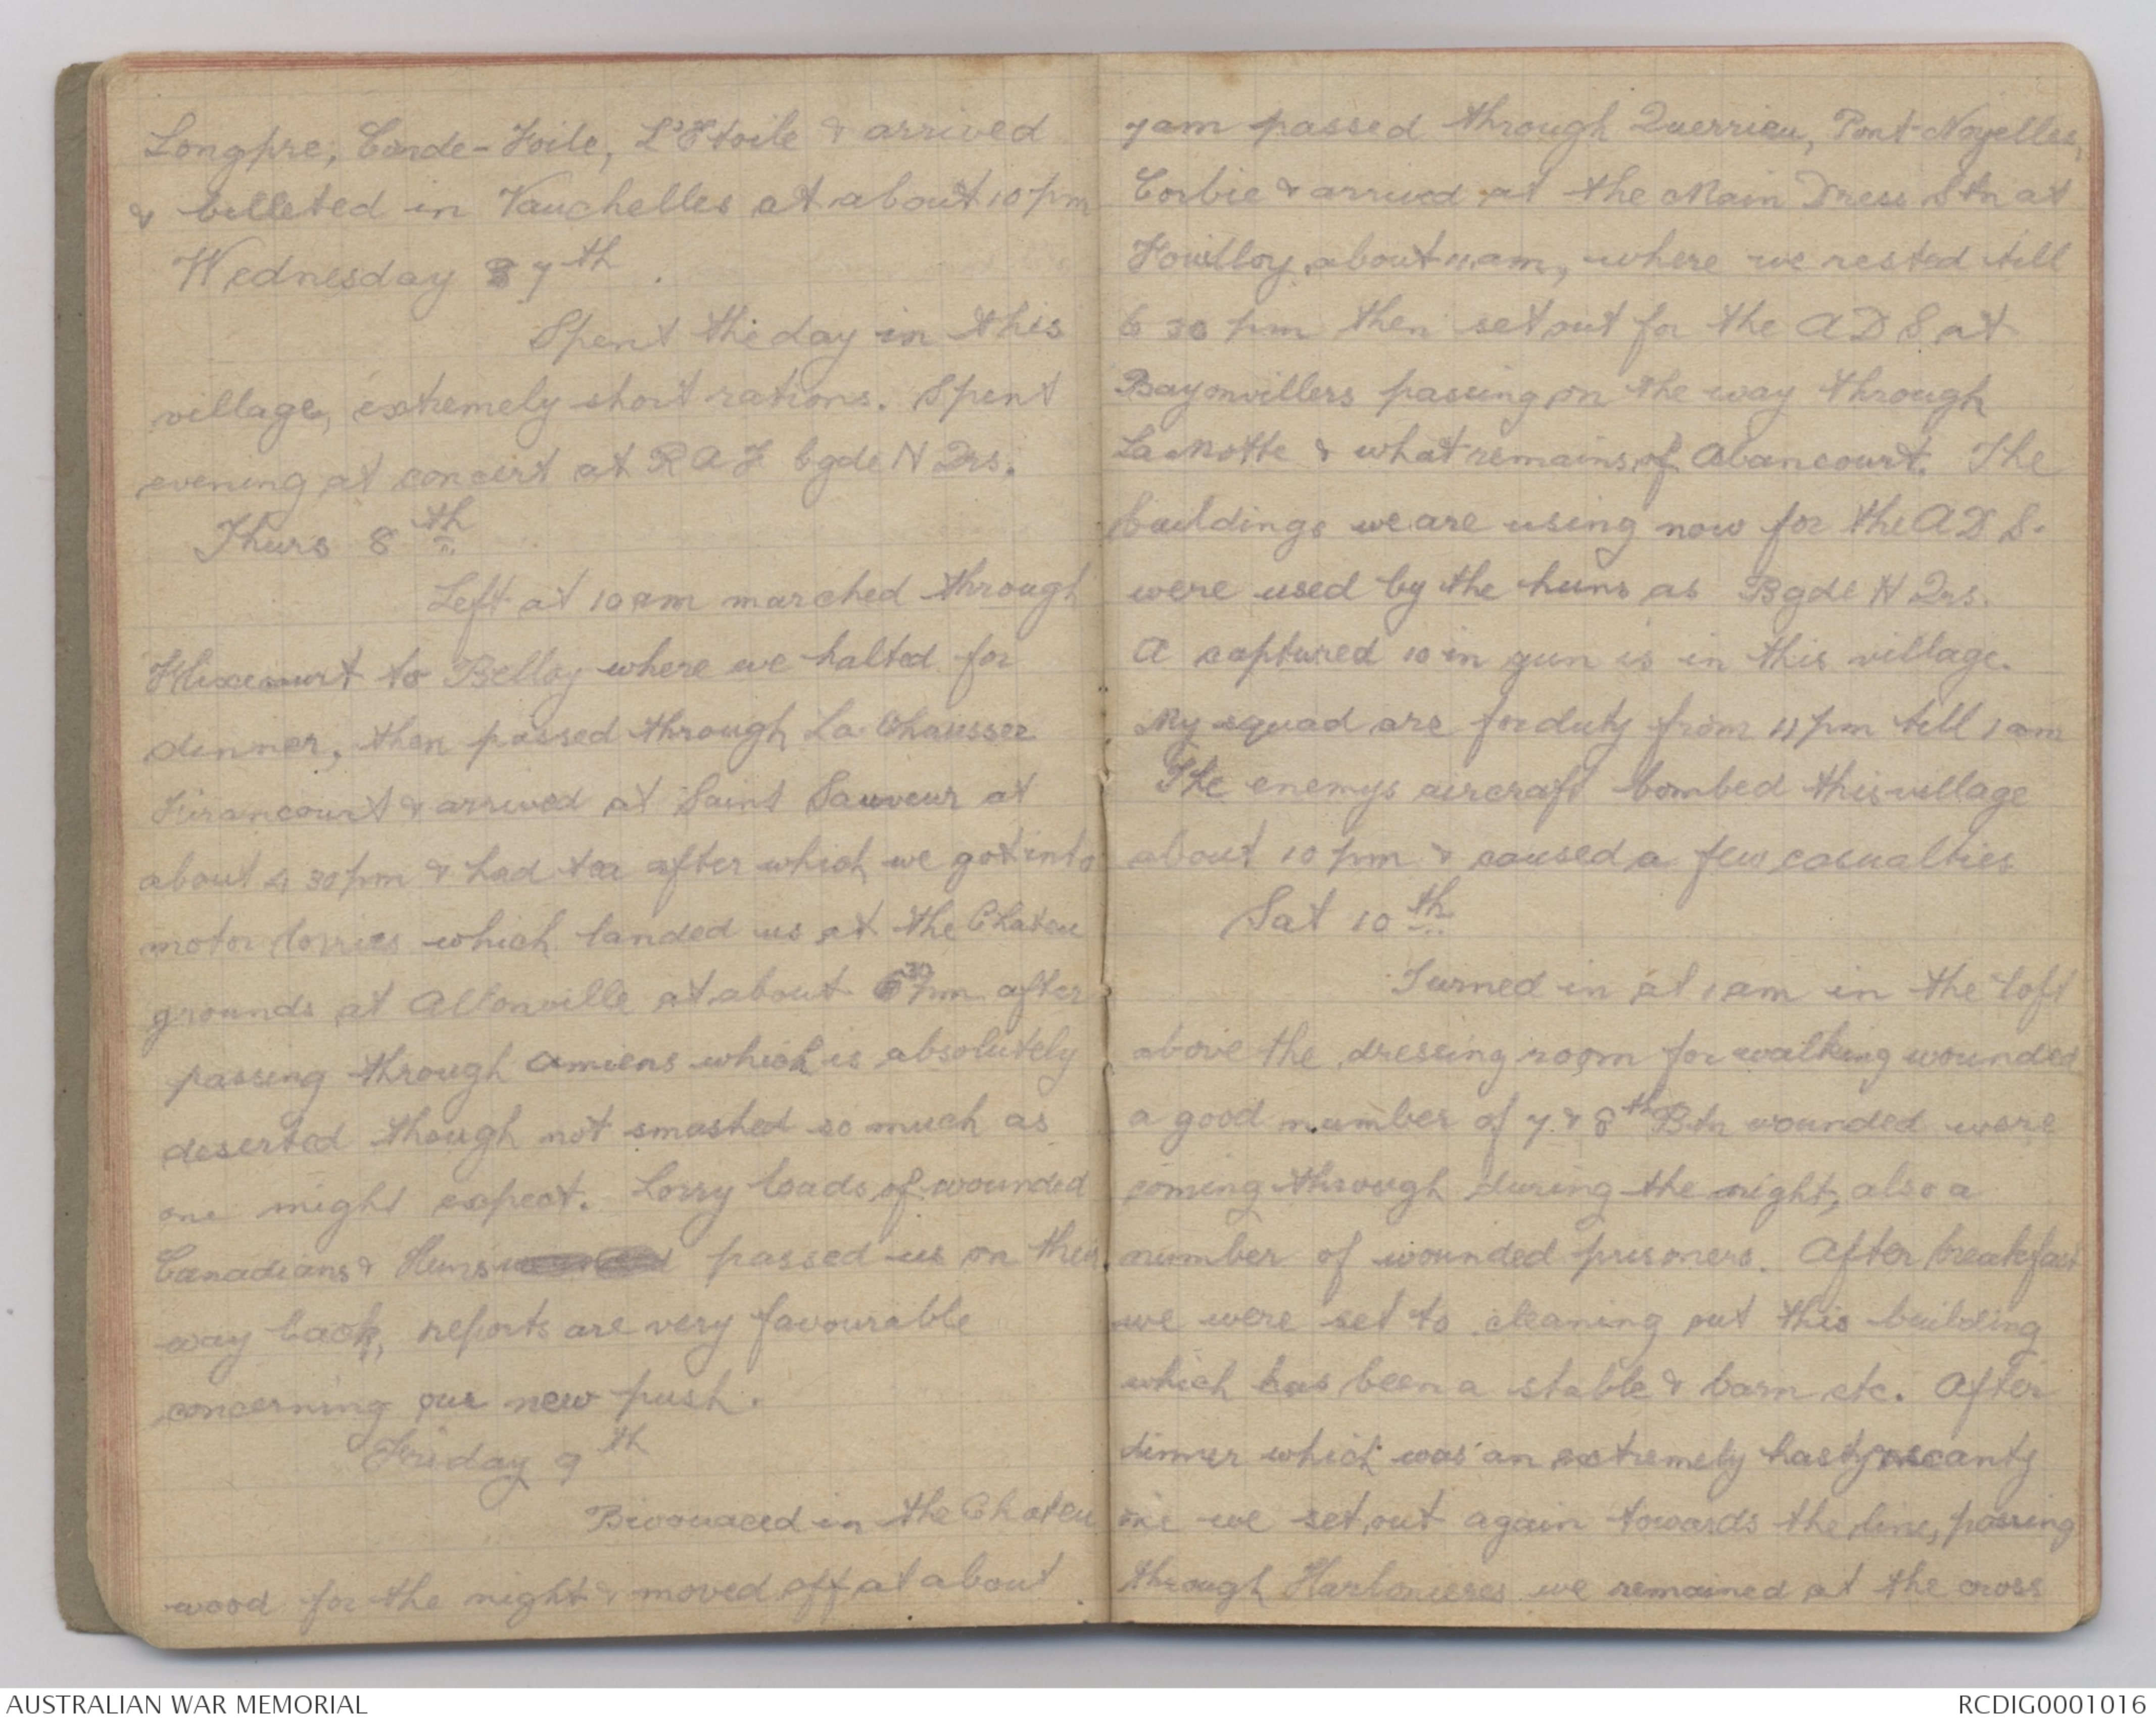 Longpre, Conde-Foile, L'Etoile & arrived
& billeted in Vauchelles at about 10 pm
Wednesday 7th.
Spent the day in this
village, extremely short rations. Spent
evening at concert at RAF bgde H Qrs.
Thurs 8th
Left at 10 am marched through
Flixecourt to Belloy where we halted for
dinner, then passed through La Chausser
Tirancourt & arrived at Saint Sauveur at
about 4 30 pm & had tea after which we got into
motor lorries which landed us at the Chateu
grounds at Allonville at about 6 30 pm after
passing through Amiens which is absolutely
deserted though not smashed so much as
one might expect. Lorry loads of wounded
Canadians & Huns passed us on their
way back, reports are very favourable
concerning our new push.
Friday 9th
Bivouaced in the Chateu
wood for the night & moved off at about
7am passed through Querrieu, Pont-Noyelles,
Corbie & arrived at the Main Dress Stn at
Fouilloy about 11 am, where we rested till
6 30 pm then set out for the ADS at
Bayonvillers passing on the way through
La Motte & what remains of Abancourt. The
buildings we are using now for the ADS.
were used by the huns as Bgde H Qrs.
A captured 10 in gun is in this village.
My squad are for duty from 11 pm till 1 am
The enemys aircraft bombed this village
about 10 pm & caused a few casualties
Sat 10th
Turned in at 1 am in the loft
above the dressing room for walking wounded
a good number of 7 & 8th Btn wounded were
coming through during the night, also a
number of wounded prisoners. After breakfast
we were set to cleaning out this building
which has been a stable & barn etc. After
dinner which was an extremely hasty scanty
one we set out again towards the line, passing
through Harbonieres we remained at the cross
AUSTRALIAN WAR MEMORIAL
RCDIG0001016